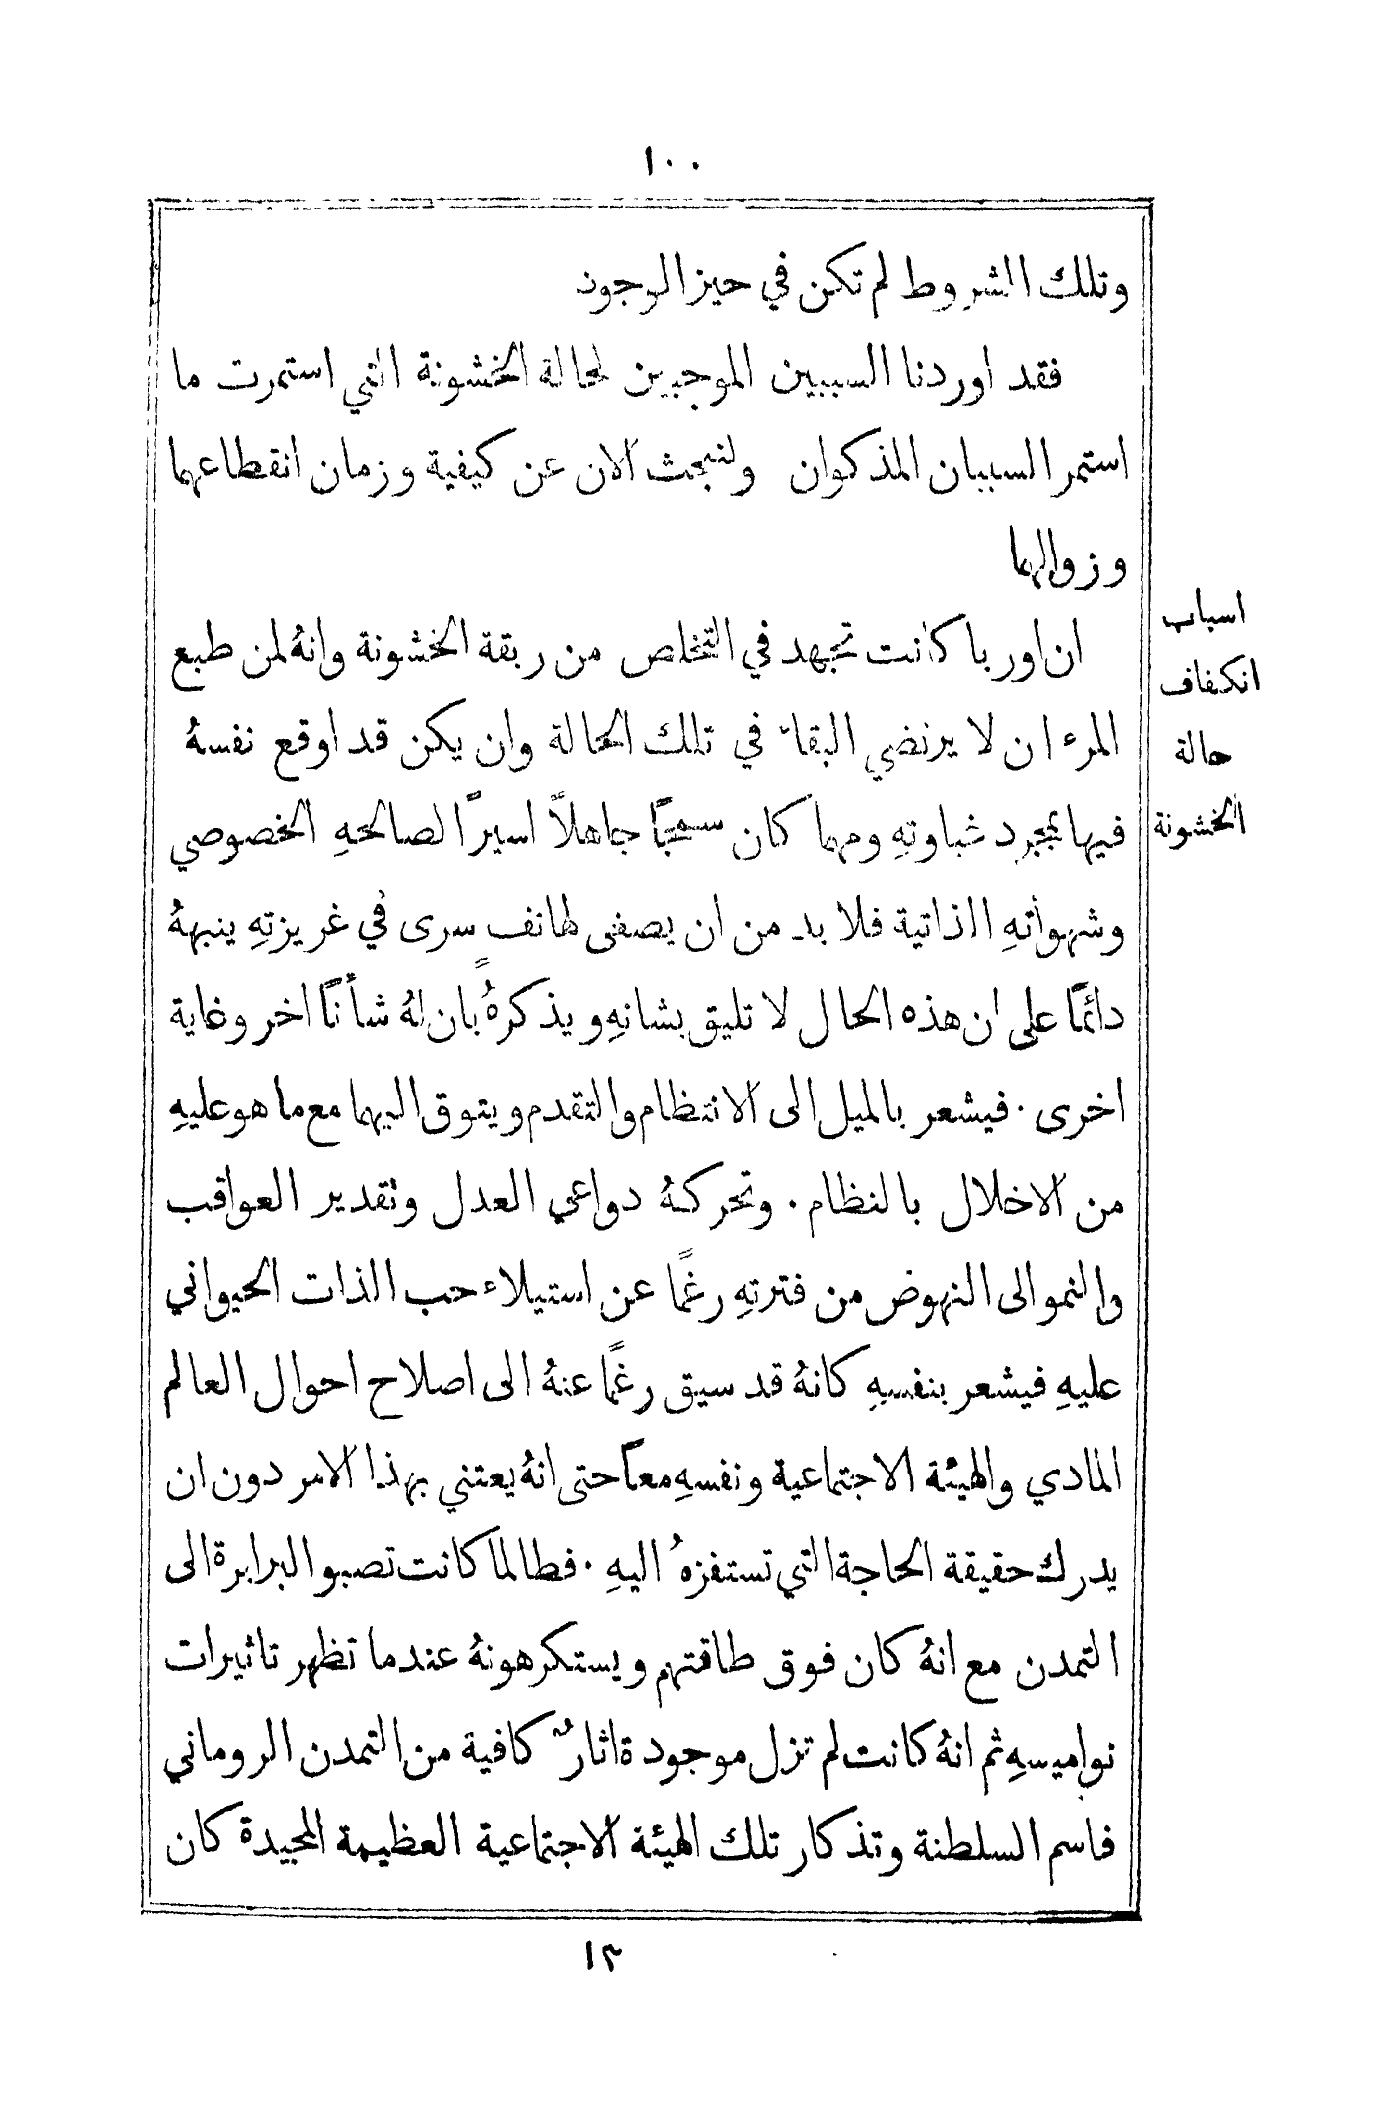 ١٠٠
وتلك الشروط لم تكن في حيز الوجود
فقد اوردنا السببين الموجبين لحالة الخشونة التي استمرت ما
استمر السببان المذكوان ولنبحث الان عن كيفية وزمان انقطاعهما
وزوالهما
اسباب
انكفاف
حالة
الخشونة
ان اوربا كانت تجهد في التخلص من ربقة الخشونة وانهُ لمن طبع
المرء ان لا يرتضي البقاء في تلك الحالة وان يكن قد اوقع نفسهُ
فيها بمجرد غباوتهِ ومهما كان سمجًا جاهلاً اسيرًا لصالحهِ الخصوصي
وشهواتهِ الذاتية فلا بد من ان يصغى لهاتف سرى في غريزتهِ ينبههُ
دائمًا على ان هذه الحال لا تليق بشانهِ ويذكرهُ بان لهُ شأنًا اخر وغاية
اخرى . فيشعر بالميل الى الانتظام والتقدم ويتوق اليهما مع ما هو عليهِ
من الاخلال بالنظام . وتحركهُ دواعي العدل وتقدير العواقب
والنمو الى النهوض من فترتهِ رغمًا عن استيلاء حب الذات الحيواني
عليهِ فيشعر بنفسهِ كانهُ قد سيق رغمًا عنهُ الى اصلاح احوال العالم
المادي والهيئة الاجتماعية ونفسهِ معًا حتى انهُ يعتني بهذا الامر دون ان
يدرك حقيقة الحاجة التي تستفزهُ اليهِ . فطالما كانت تصبو البرابرة الى
التمدن مع انهُ كان فوق طاقتهم ويستكرهونهُ عندما تظهر تاثيرات
نواميسهِ ثم انهُ كانت لم تزل موجودة اثارٌ كافية من التمدن الروماني
فاسم السلطنة وتذكار تلك الهيئة الاجتماعية العظيمة المجيدة كان
١٣